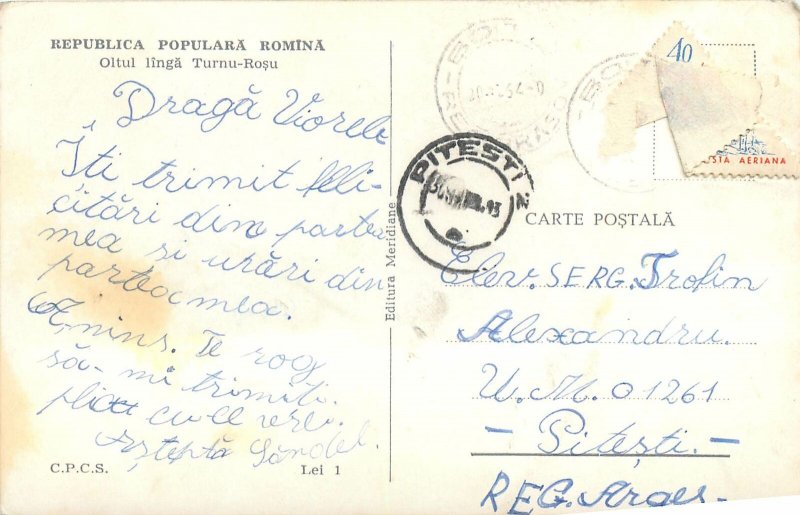 REPUBLICA POPULARĂ ROMÎNĂ
Oltul lîngă Turnu-Roşu
Dragă Viorele
Îti trimit feli-
citări din partea
mea si urări din
partea mea.
Te rog
să-mi trimiti.
plic cu ce vrei.
Aşteptă Săndel.
C.P.C.S.
Lei 1
Editura Meridiane
40
POSTA AERIANA
PITEŞTI
CARTE POŞTALĂ
Elev. SERG. Trofin
Alexandru.
U. M. 01261
- Piteşti. -
REG. Argeş-